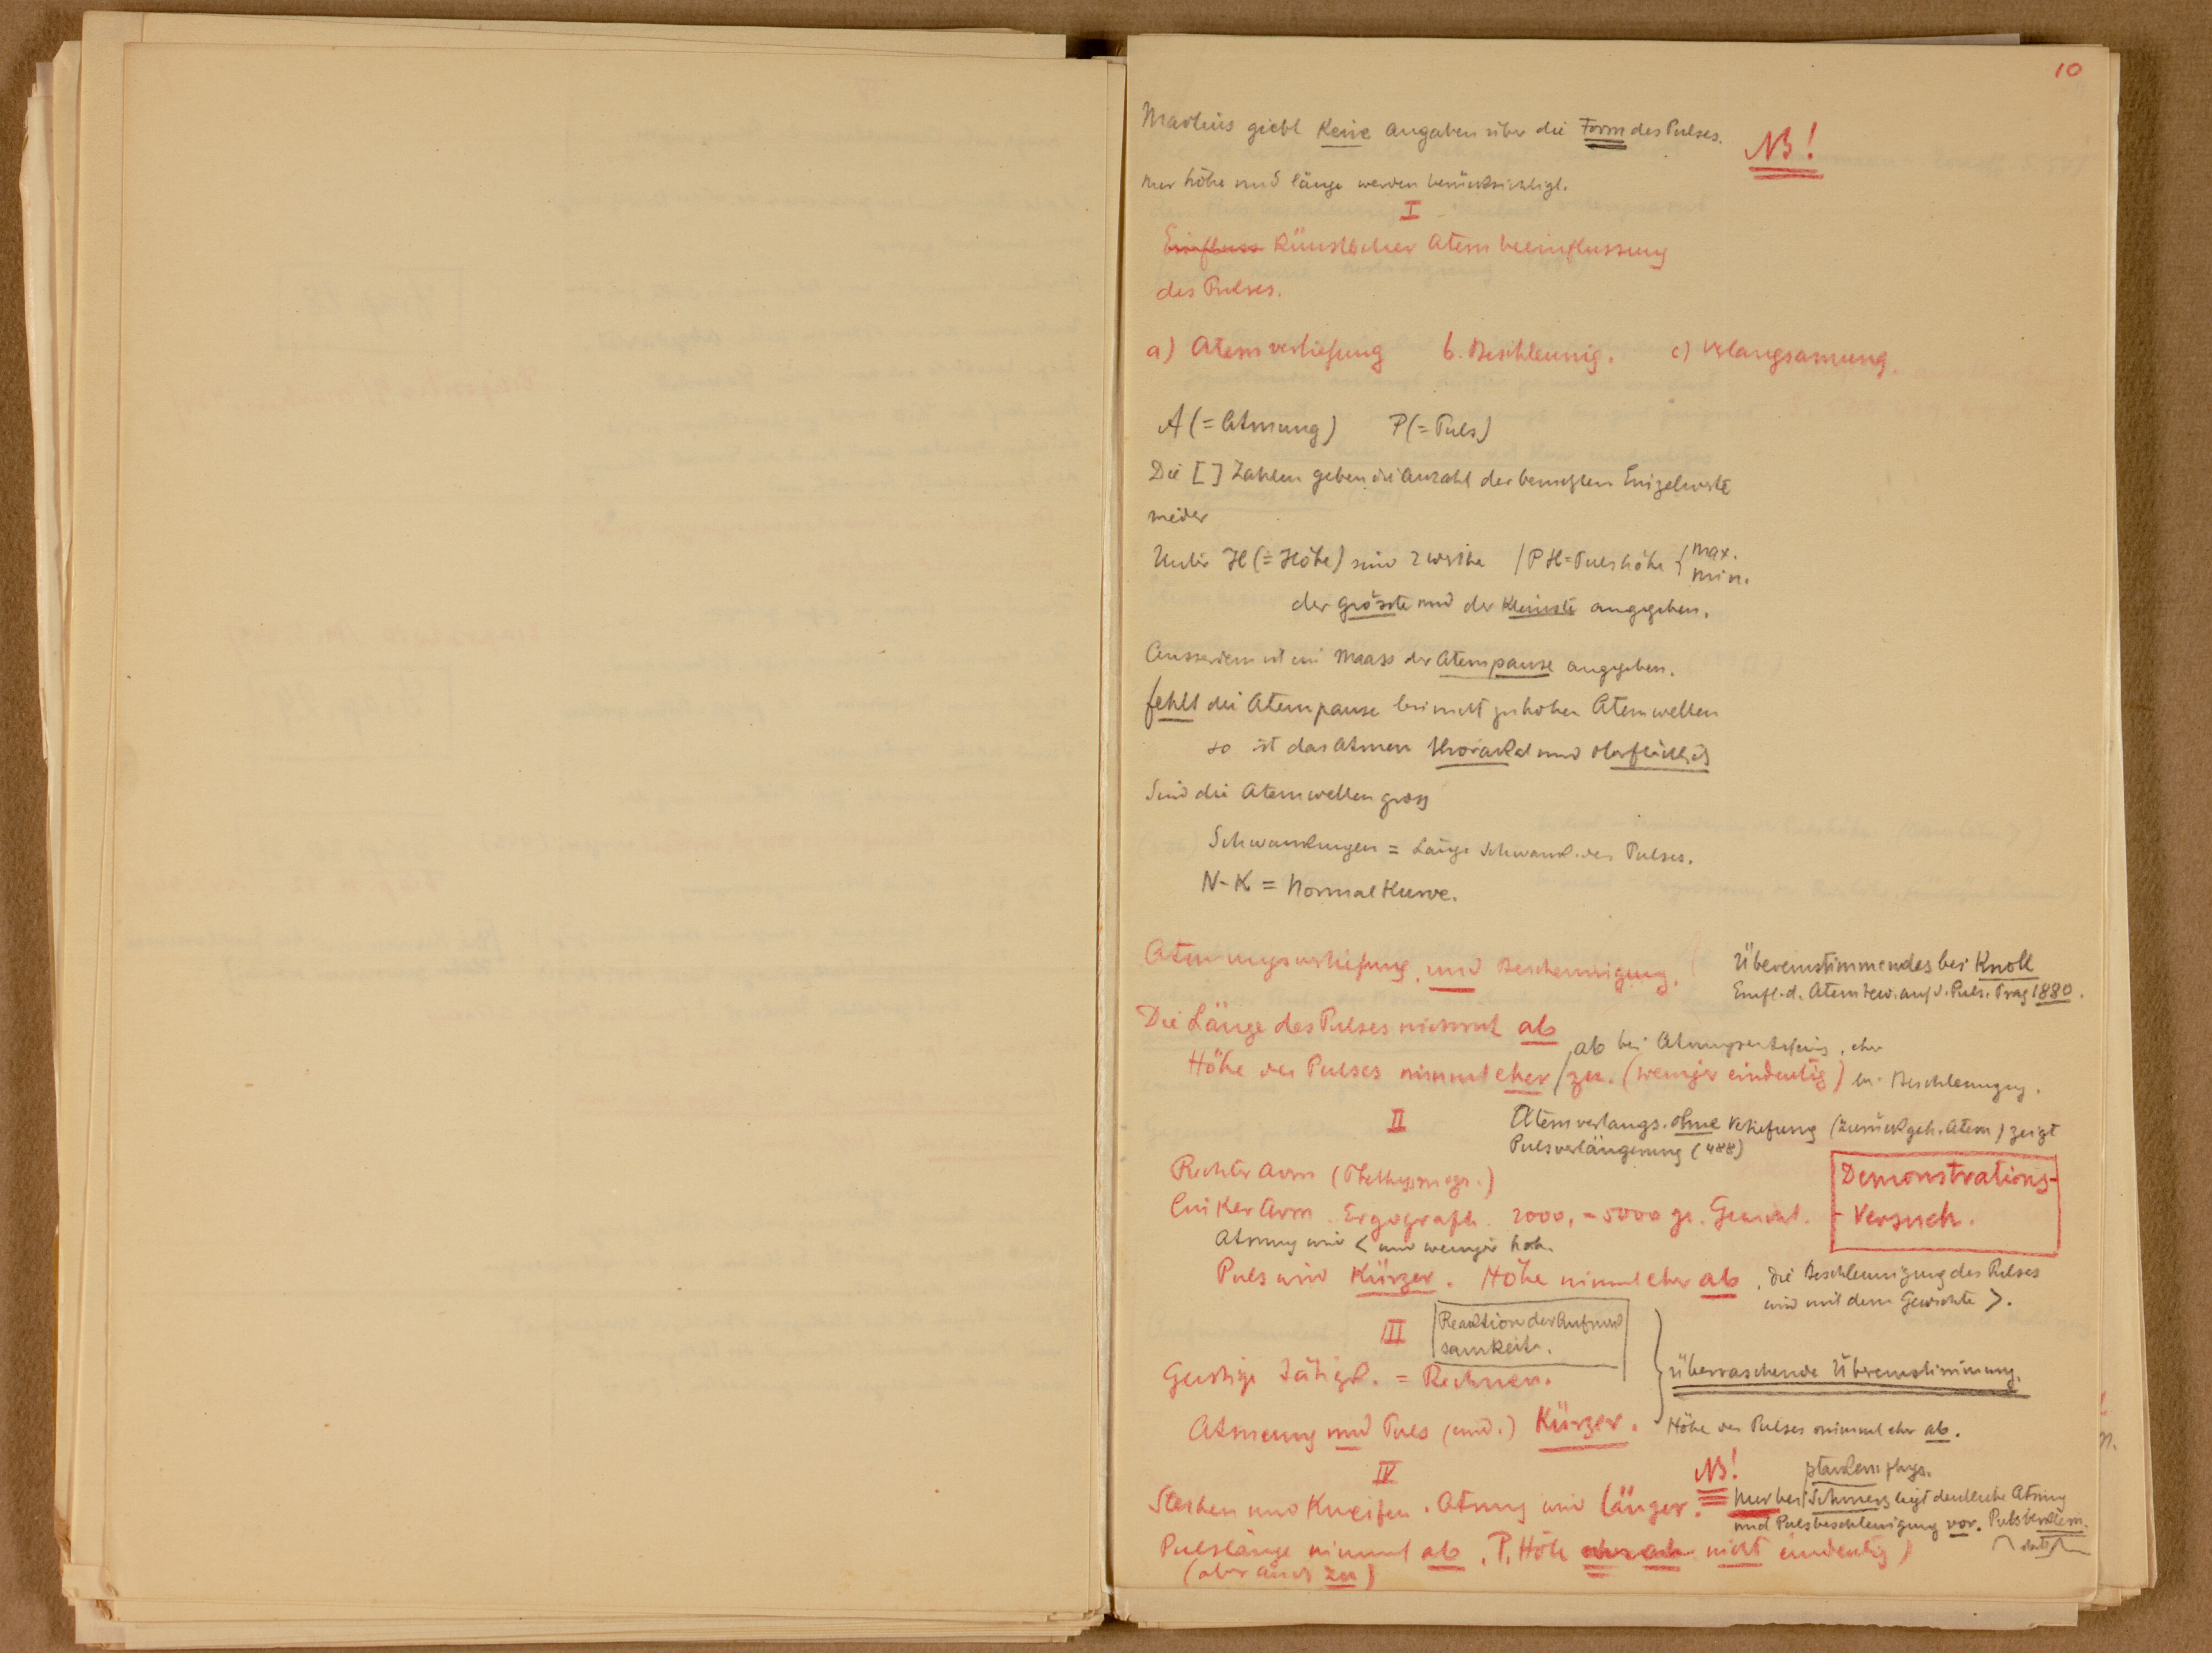 10
Martius giebt Keine Angaben über die Form des Pulses.
NB!
nur höhe und länge werden berücksichtigt.
I
Einfluss Künstlicher Atem beeinflussung
des Pulses.
a) Atemvertiefung b. Beschleunig. c) Verlangsamung.
A (= Atmung) P (= Puls)
Die [ ] Zahlen geben die Anzahl der benutzten Einzelwerte
wieder
Unter H (= Höhe) sind 2 Werthe / PH = Pulshöhe { max.
min.
der grösste und der Kleinste angegeben.
Ausserdem ist ein Maass der Atempause angegeben.
fehlt die Atempause bei nicht zu hohen Atemwellen
so ist das Atmen thorakal und oberflächlich
Sind die Atemwellen gross
Schwankungen = Länge Schwank. des Pulses.
N-K = Normal Kurve.
Atmungsvertiefung und Beschleunigung.
Übereinstimmendes bei Knoll
Einfl. d. Atembew. auf d. Puls. Prag 1880.
Die Länge des Pulses nimmt ab
ab bei Atmungsvertiefung, eher
Höhe des Pulses nimmt eher / zu. (weniger eindeutig) bei Beschleunigung.
II
Atemverlangs. ohne Vertiefung (zurückgeh. Atem) zeigt
Pulsverlängerung (488)
Rechter Arm (Plethysmogr.)
Linker Arm Ergograph. 2000, - 5000 gr. Gewicht.
Demonstrations-
- Versuch.
Atmung wird < und weniger hoch.
Puls wird Kürzer. Höhe nimmt eher ab, die Beschleunigung des Pulses
wird mit dem Gewichte >.
III
Reaktion der Aufmerk
samkeit.
Geistige Tätigk. = Rechnen.
überraschende Übereinstimmung.
Atmung und Puls (eind.) Kürzer.
Höhe des Pulses nimmt eher ab.
IV
NB!
starkem phys.
Stechen und Kneifen. Atmung wird länger.
Nur bei / Schmerz liegt deutliche Atmung
und Pulsbeschleunigung vor.
Pulslänge nimmt ab, P. Höhe eher ab nicht eindeutig)
(aber auch zu)